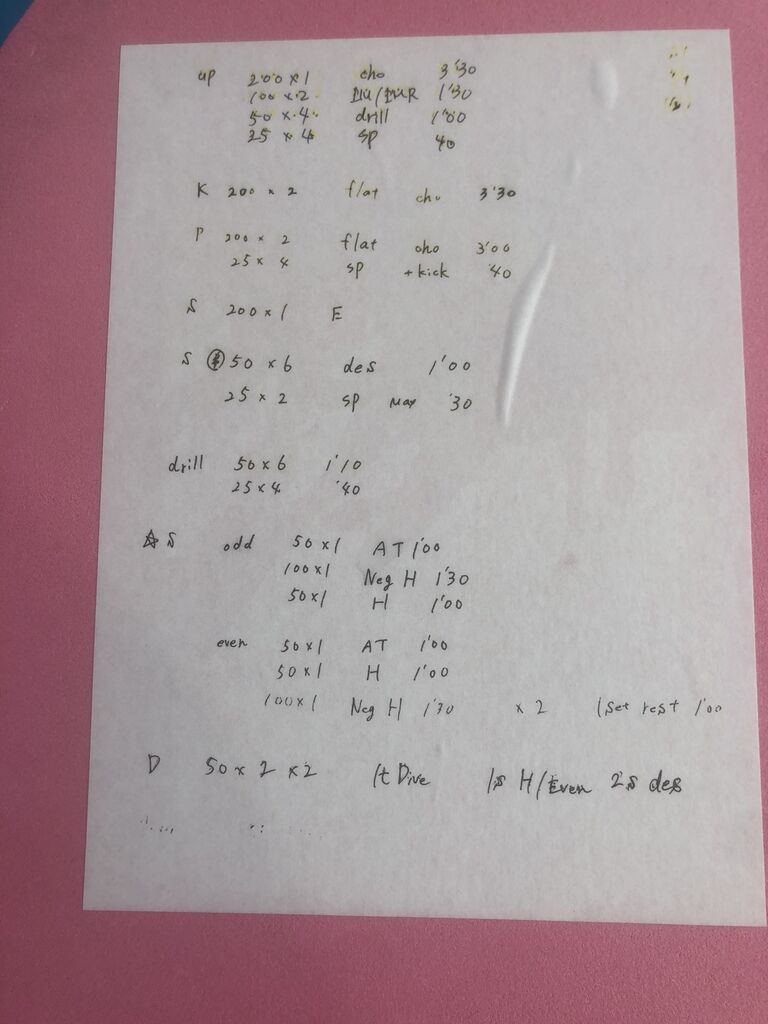 up 200 × 1 cho 3'30
100 × 2 IM/IMR 1'30
50 × 4 drill 1'00
25 × 4 sp 40
K 200 × 2 flat cho 3'30
P 200 × 2 flat cho 3'00
25 × 4 sp +kick '40
S 200 × 1 E
S 50 × 6 des 1'00
25 × 2 sp Max '30
drill 50 × 6 1'10
25 × 4 '40
☆ S odd 50 × 1 AT 1'00
100 × 1 Neg H 1'30
50 × 1 H 1'00
even 50 × 1 AT 1'00
50 × 1 H 1'00
100 × 1 Neg H 1'30 × 2 1set rest 1'00
D 50 × 2 × 2 1t Dive 1s H/Even 2s des